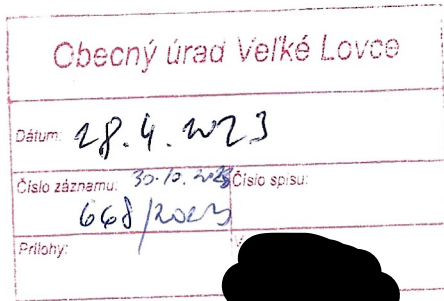 Obecný úrad Veľké Lovce
Dátum: 28.4.2023
Číslo záznamu: 30.10.2023 Číslo spisu:
668/2023
Prílohy: V